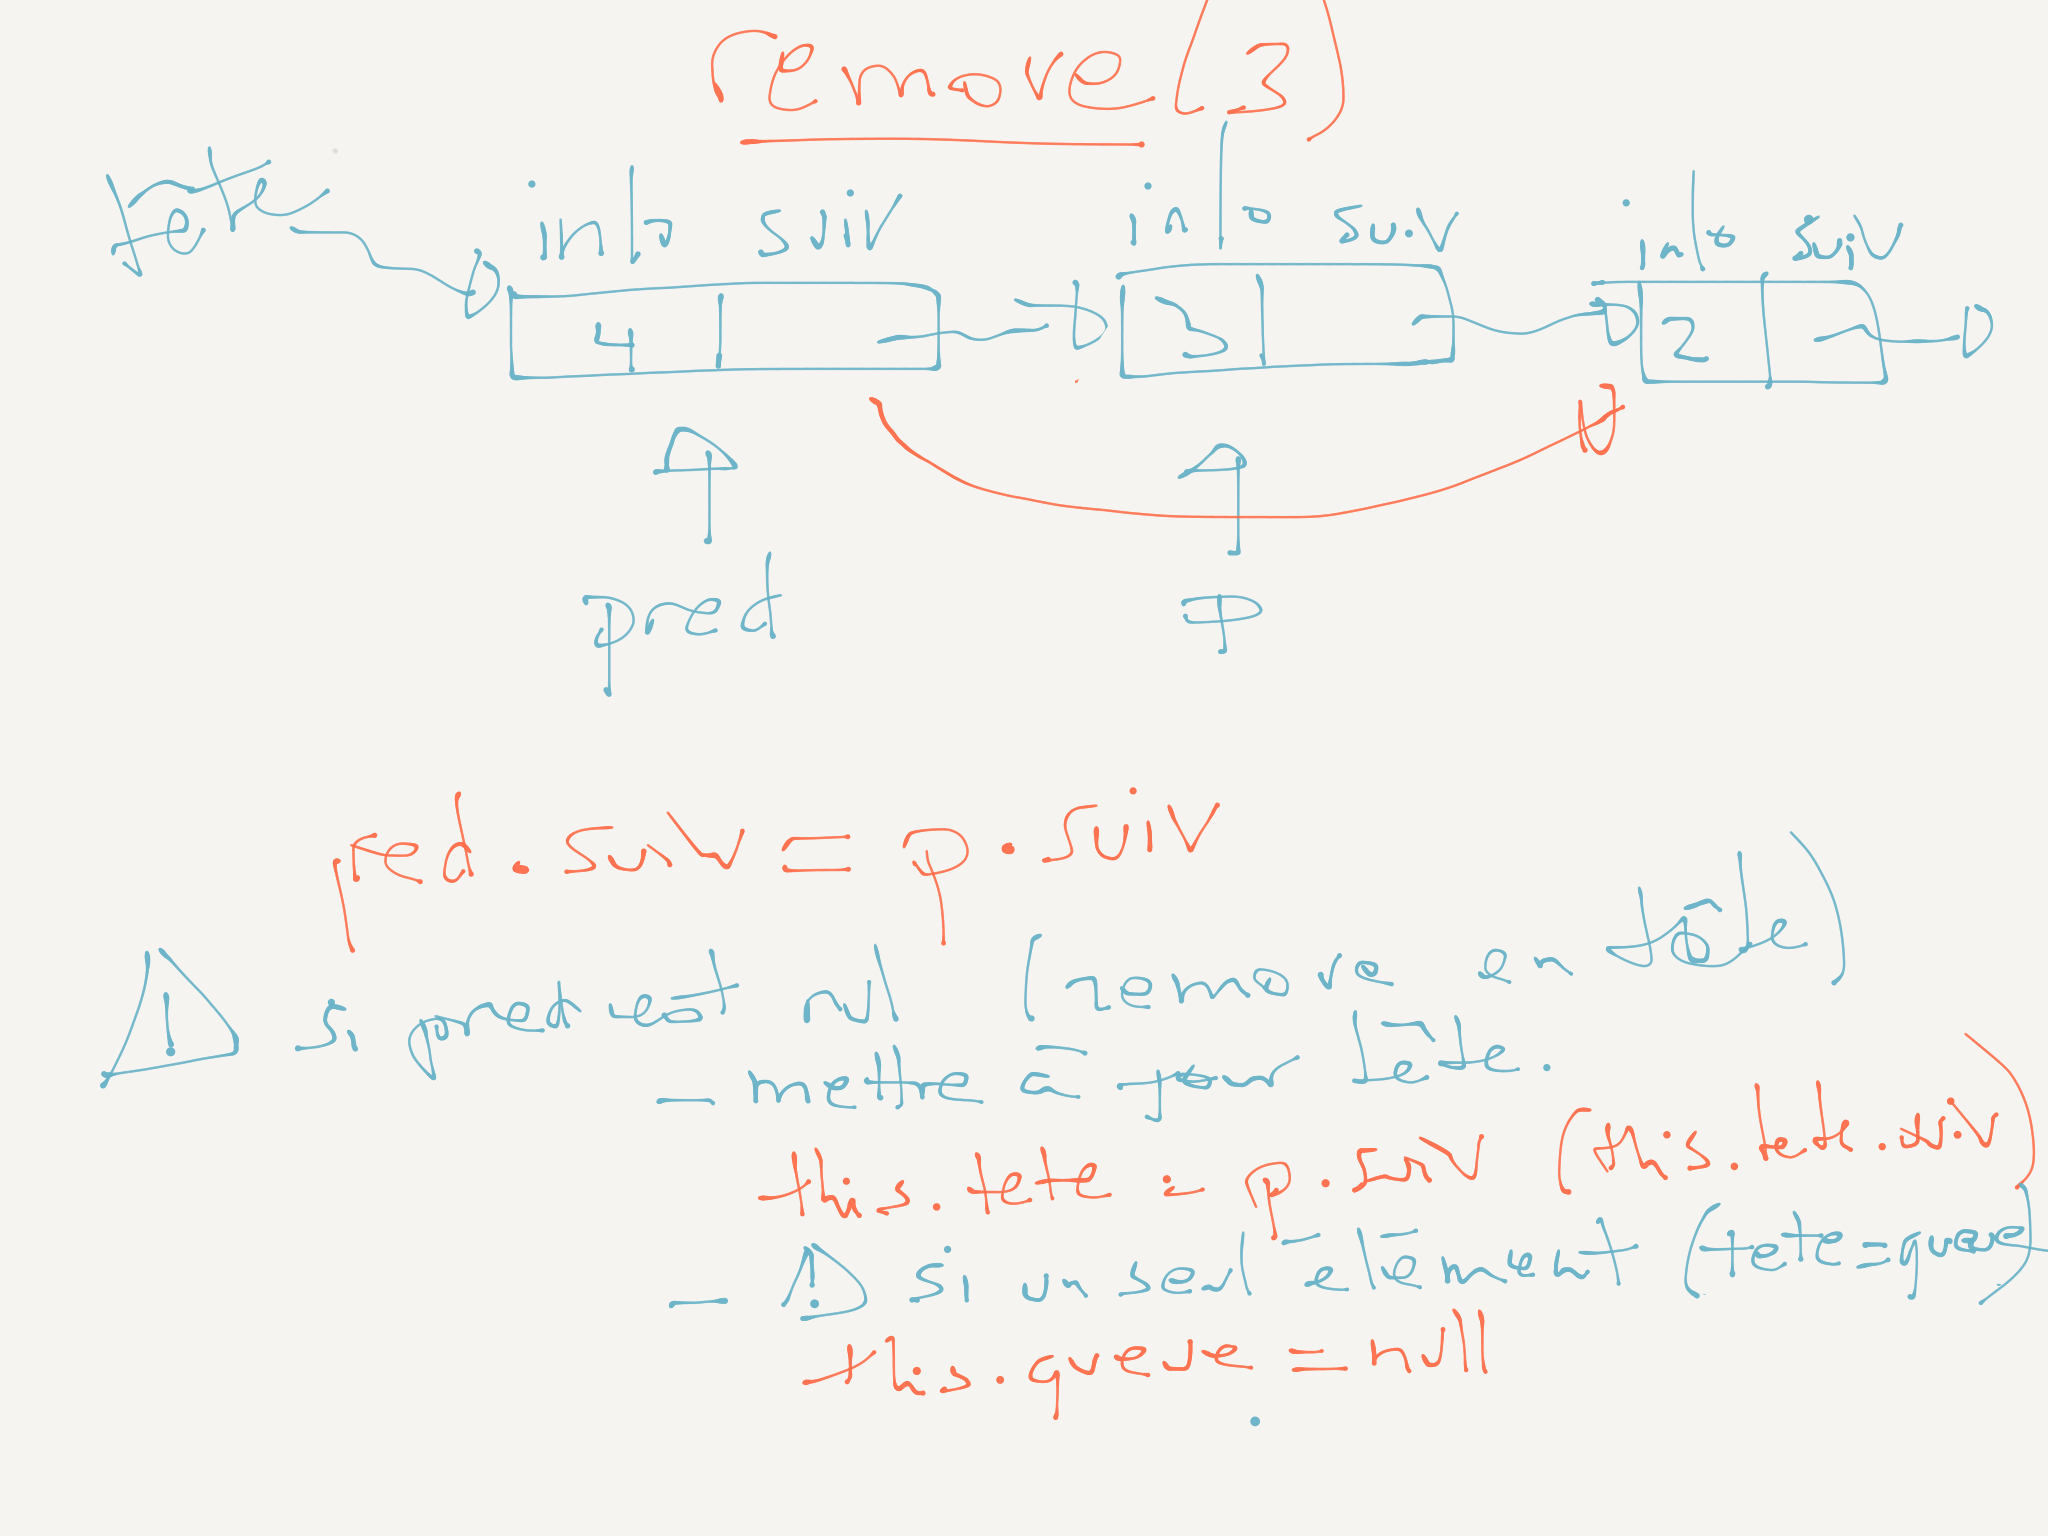 remove(3)
tete
info suiv info suiv info suiv
4 3 2
pred p
pred.suiv = p.suiv
! si pred est nul (remove en tête)
- mettre à jour tête.
this.tete = p.suiv (this.tete.suiv)
- ! si un seul élément (tete=queue)
this.queue = null